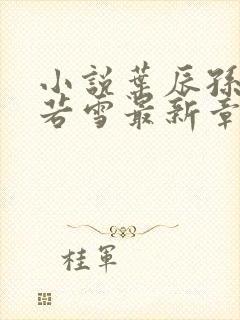 小說葉辰孫
若雪最新章
桂軍